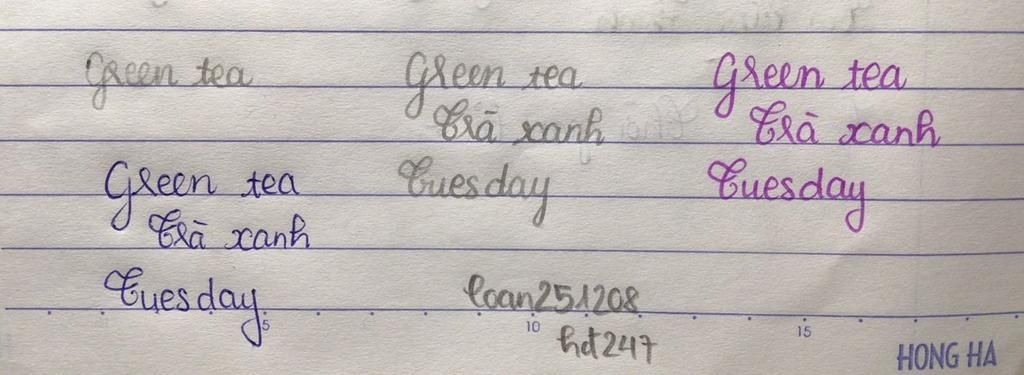 Green tea Green tea Green tea
Trà xanh Trà xanh
Green tea Tuesday Tuesday
Trà xanh
Tuesday loan251208
5 10 15
hdt247
HONG HA